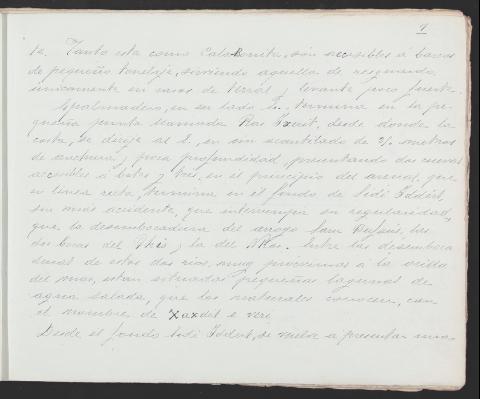 9
te. Tanto esta como Cala Bonita, son accesibles á barcos
de pequeño tonelaje, sirviendo aquella de resguardo
únicamente en casos de terral y levante poco fuerte.
Espalmadero, en su lado E., termina en la pe-
queña punta llamada Ras, desde donde la
costa, se dirije al S., en un acantilado de metros
de anchura y poca profundidad, presentando dos cuevas
accesibles á botes y tres, en el principio del arenal, que
en linea recta, termina en el fondo de Sidi Iddist,
sin más accidente, que interrumpa su regularidad,
que la desembocadura del arroyo, las
dos bocas del y la del. Entre las desemboca
duras de estos dos rios, muy próximas á la orilla
del mar, están situadas pequeñas lagunas de
agua salada, que los naturales conocen, con
el nombre de
Desde el fondo Sidi Iddist, se vuelve a presentar